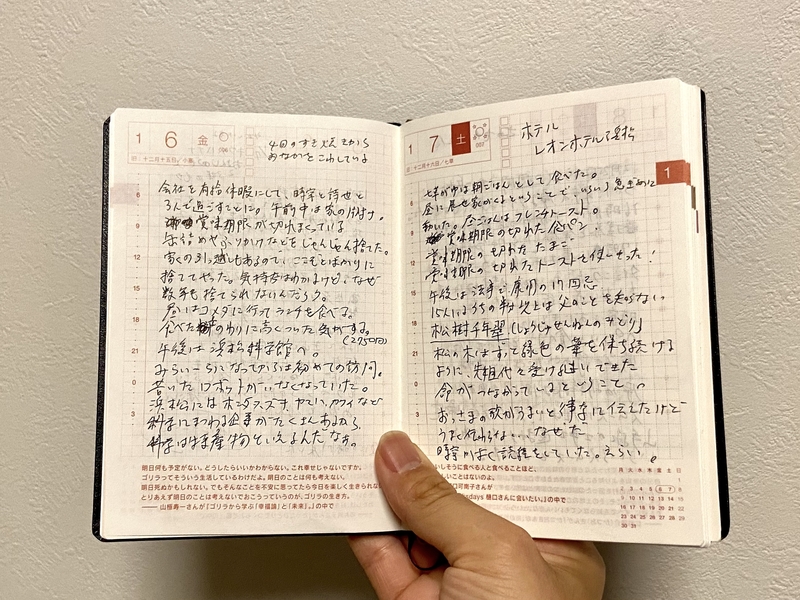 1 6 金
十二月十五日/小寒
4日のすき焼きから
おなかをこわしているよ
会社を有給休暇にして、時宗と詩世と
3人で過ごすことに。午前中は家の片付け。
賞味期限が切れまくっている
缶詰めやふりかけなどをじゃんじゃん捨てた。
家の引越しもあるので、ここぞとばかりに
捨ててやった。気持ちはわかるけど、なぜ
数年も捨てられないんだろう。
昼はコメダに行ってランチを食べる。
食べたわりに高くついた気がする。
(2750円)
午後は浜松科学館へ。
みらいーらになってからは初めての訪問。
昔いたロボットがいなくなっていた。
浜松にはホンダ、スズキ、ヤマハ、カワイなど
科学にまつわる企業がたくさんあるから、
科学は名産物といえるんだなぁ。
明日何も予定がない。どうしたらいいかわからない。これ幸せじゃないですか。
ゴリラってそういう生活しているわけだよ。明日のことは何も考えない。
明日死ぬかもしれない。でもそんなことを不安に思ってたら今日を楽しく生きられな
とりあえず明日のことは考えないでおこうっていうのが、ゴリラの生き方。
―― 山極寿一さんが『ゴリラから学ぶ「幸福論」と「未来」。』の中で
1 7 土
十二月十六日/七草
ホテル
レオンホテル浜松
1
七草がゆは朝ごはんとして食べた。
昼に
動いた。昼ごはんはフレンチトースト。
賞味期限の切れた食パン、
賞味期限の切れたたまご
賞味期限の切れたトーストを使った!
午後は法事で、17回忌
15人はうちの
松樹千年翠(しょうじゅせんねんのみどり)
松の木はずっと緑色の葉を保ち続ける
ように、先祖代々受け継いできた
命がつながっているということ。
おっさまの歌がうまいと侍宗に伝えたけど
うまく伝わらない…なぜだ
時宗がよく読経をしていた。えらい。
いしそうに食べる人と食べることほど、
しいことはないのよ。
口可南子さんが
sdays 樋口さんに会いたい。』の中で
月 火 水 木 金 土 日
1
2 3 4 5 6 7 8
9 10 11 12 13 14 15
16 17 18 19 20 21 22
23 24 25 26 27 28 29
30 31